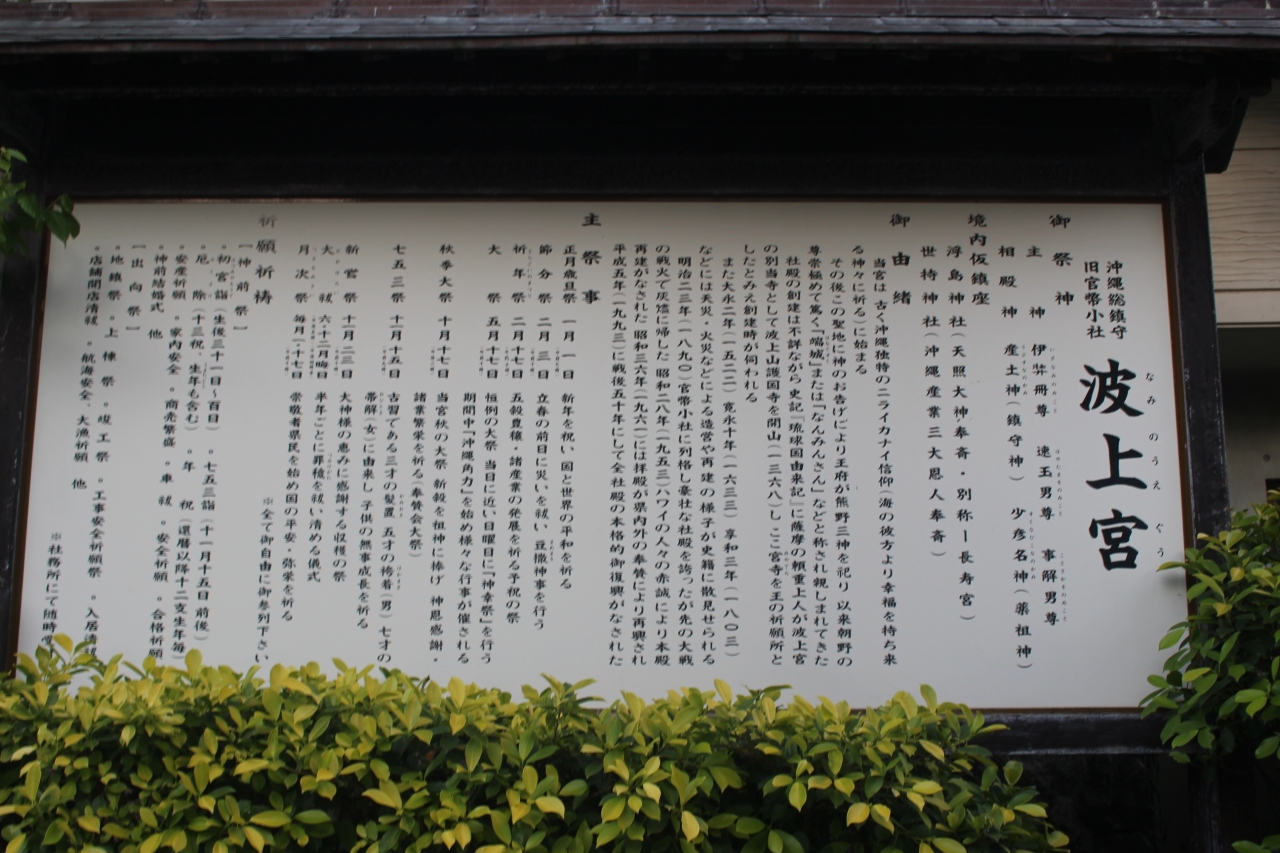 沖縄総鎮守
旧官幣小社
波上宮
なみのうえぐう
御祭神
主神 伊弉冊尊 速玉男尊 事解男尊
相殿神 産土神(鎮守神) 少彦名神(薬祖神)
境内仮鎮座
浮島神社(天照大神奉斎・別称ー長寿宮)
世持神社(沖縄産業三大恩人奉斎)
御由緒
当宮は古く沖縄独特のニライカナイ信仰(海の彼方より幸福を持ち来
る神々に祈る)に始まる
その後この聖地に神のお告げにより王府が熊野三神を祀り 以来朝野の
尊崇極めて篤く「端城」または「なんみんさん」などと称され親しまれてきた
社殿の創建は不詳ながら史記『琉球国由来記』に薩摩の頼重上人が波上宮
の別当寺として波上山護国寺を開山(一三六八)しここ宮寺を王の祈願所と
したとみえ創建時が伺われる
また大永二年(一五二二) 寛永十年(一六三三) 享和三年(一八〇三)
などには天災・火災などによる造営や再建の様子が史籍に散見せられる
明治二三年(一八九〇)官幣小社に列格し豪壮な社殿を誇ったが先の大戦
の戦火で灰燼に帰した 昭和二八年(一九五三)ハワイの人々の赤誠により本殿
再建がなされた 昭和三六年(一九六一)には拝殿が県内外の奉賛により再興され
平成五年(一九九三)に戦後五十年にして全社殿の本格的御復興がなされた
主祭事
正月歳旦祭 一月一日 新年を祝い 国と世界の平和を祈る
節分祭 二月三日 立春の前日に災いを祓い 豆撒神事を行う
祈年祭 二月十七日 五穀豊穣・諸産業の発展を祈る予祝の祭
大祭 五月十七日 恒例の大祭 当日に近い日曜日に「神幸祭」を行う
期間中「沖縄角力」を始め様々な行事が催される
秋季大祭 十月十七日 当宮秋の大祭 新穀を祖神に捧げ 神恩感謝・
諸業繁栄を祈る(奉賛会大祭)
七五三祭 十一月十五日 古習である三才の髪置 五才の袴着(男) 七才の
帯解(女)に由来し 子供の無事成長を祈る
新嘗祭 十一月二三日 大神様の恵みに感謝する収穫の祭
大祓 六・十二月晦日 半年ごとに罪穢を祓い清める儀式
月次祭 毎月一・十七日 崇敬者県民を始め国の平安・弥栄を祈る
※全て御自由に御参列下さい
祈願祈祷
【神前祭】
◦初宮詣(生後三十一日～百日) ◦七五三詣(十一月十五日前後)
◦厄除(十三祝、生年も含む) ◦年祝(還暦以降十二支生年毎)
◦安産祈願 ◦家内安全 ◦商売繁盛 ◦車祓 ◦安全祈願 ◦合格祈願
◦神前結婚式 他
【出向祭】
◦地鎮祭 ◦上棟祭 ◦竣工祭 ◦工事安全祈願祭 ◦入居清祓
◦店舗開店清祓 ◦航海安全、大漁祈願 他
※社務所にて随時受